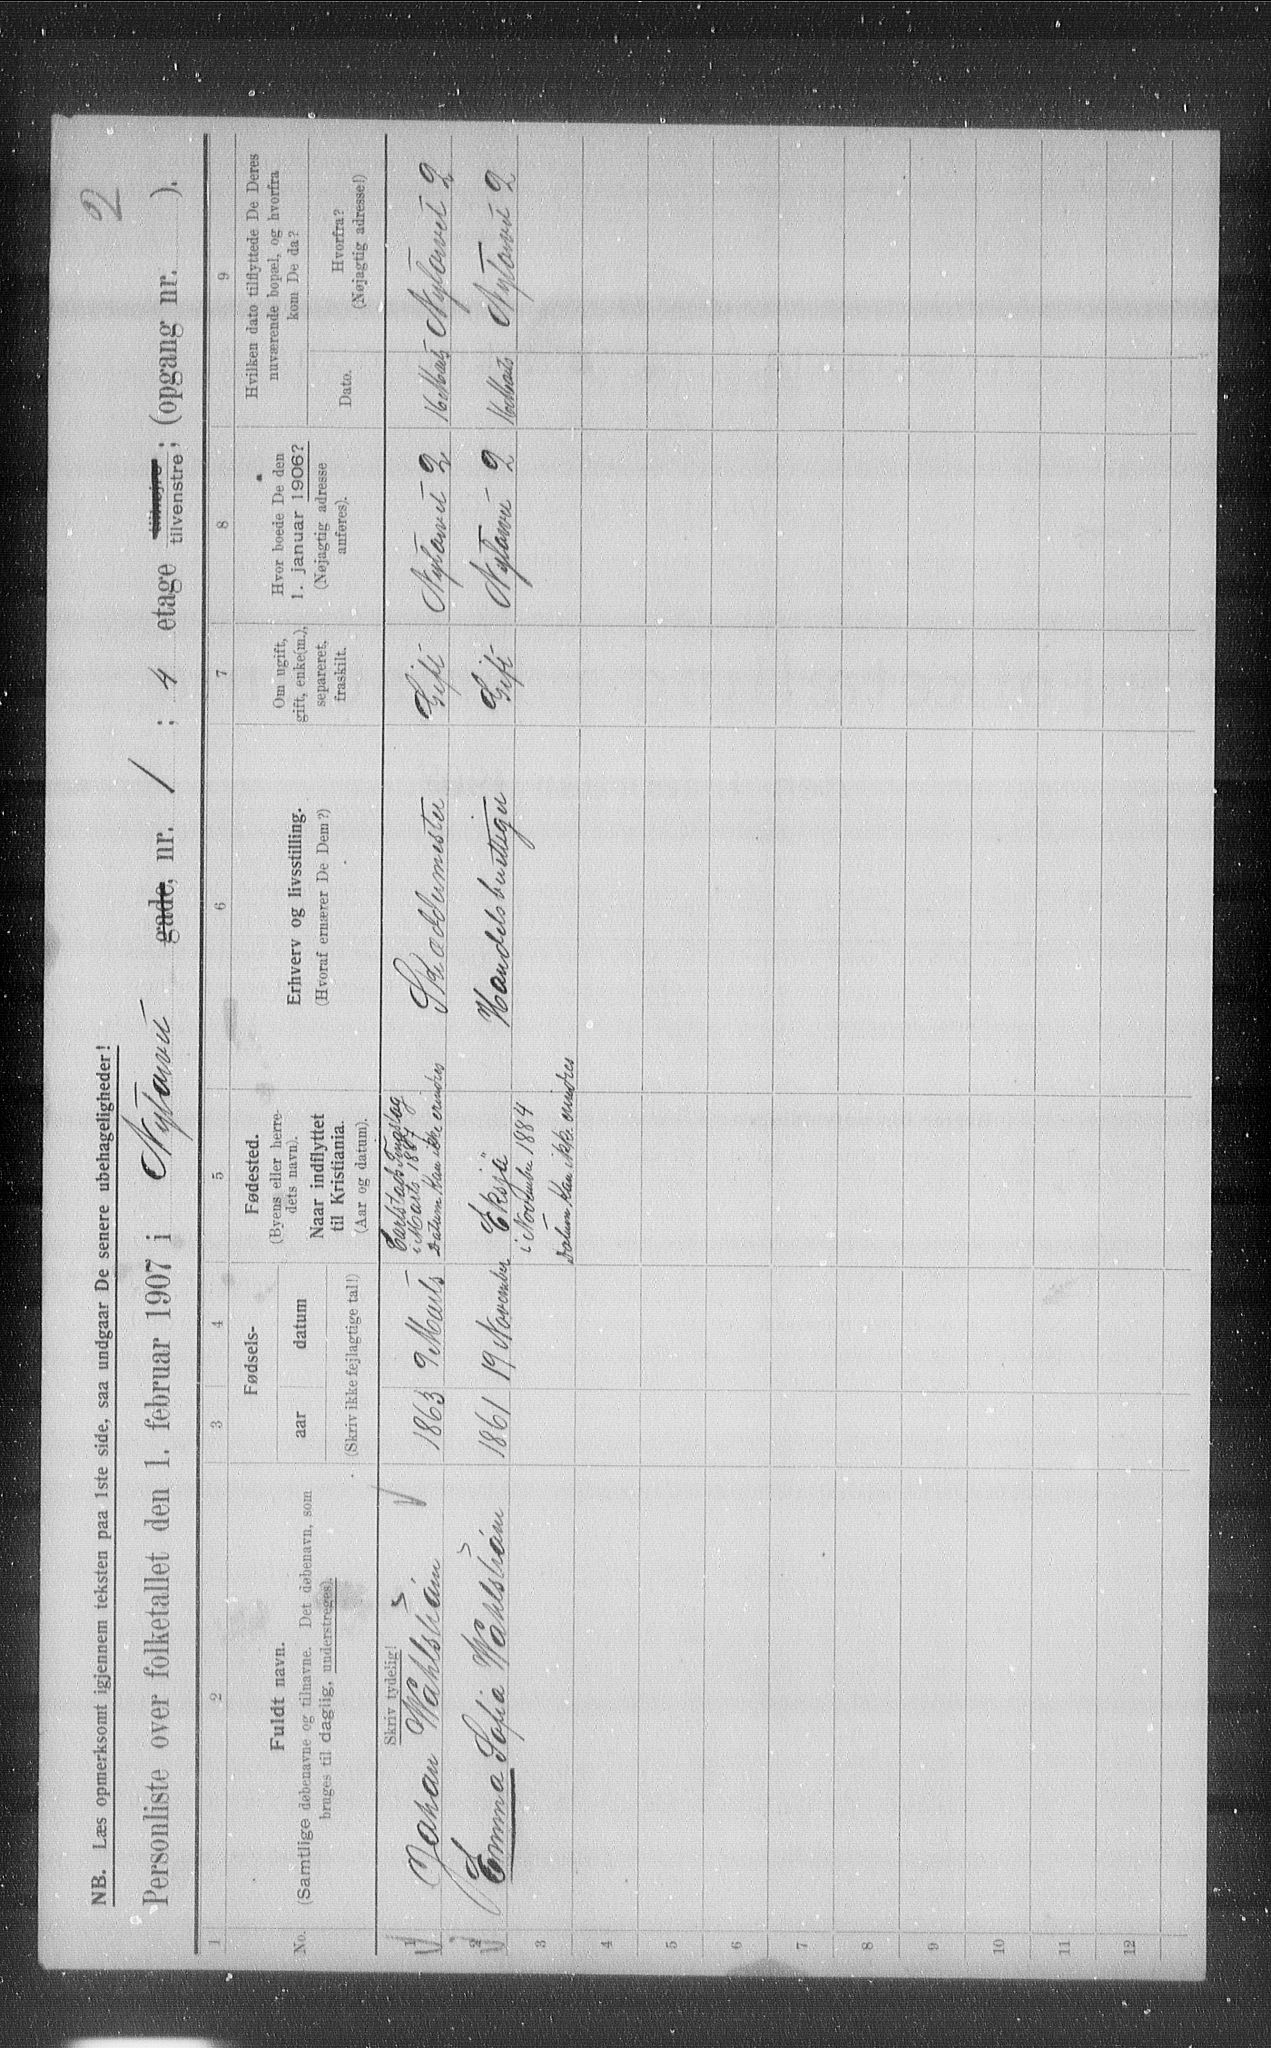 2
NB. Læs opmerksomt igjennem teksten paa 1ste side, saa undgaar De senere ubehageligheder!
Personliste over folketallet den 1. februar 1907 i Nytorvet gade, nr. 1 ; 4 etage tilhøjre ; (opgang nr. ).
tilvenstre;
1 2 3 4 5 6 7 8 9
No.
Fuldt navn.
(Samtlige døbenavne og tilnavne. Det døbenavn, som
bruges til daglig, understreges).
Fødsels-
aar datum
(Skriv ikke fejlagtige tal!)
Fødested.
(Byens eller herre-
dets navn).
Naar indflyttet
til Kristiania.
(Aar og datum).
Erhverv og livsstilling.
(Hvoraf ernærer De Dem?)
Om ugift,
gift, enke(m.),
separeret,
fraskilt.
Hvor boede De den
1. januar 1906?
(Nøjagtig adresse
anføres).
Hvilken dato tilflyttede De Deres
nuværende bopæl, og hvorfra
kom De da?
Dato.
Hvorfra?
(Nøjagtig adresse!)
Skriv tydelig!
1 Johan Wahlström 1863 9 Marts Carlstad
i Marts 1887
Datum kan ikke erindres
Skræddermester Gift Nytorvet 2 16 Marts Nytorvet 2
2 Emma Sofia Wahlström 1861 19 November Eksjä
i November 1884
Datum kan ikke erindres
Handelsberettiget Gift Nytorvet 2 16 Marts Nytorvet 2
3
4
5
6
7
8
9
10
11
12